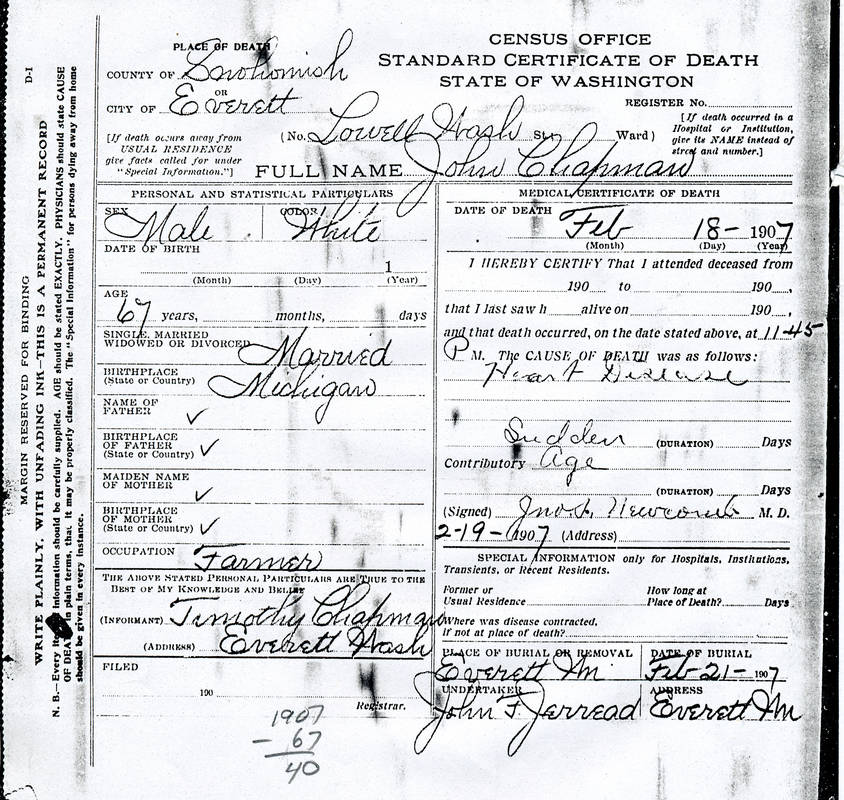 CENSUS OFFICE
STANDARD CERTIFICATE OF DEATH
STATE OF WASHINGTON
PLACE OF DEATH
COUNTY OF Snohomish
OR
CITY OF Everett
REGISTER No.
[If death occurs away from
USUAL RESIDENCE
give facts called for under
"Special Information."]
(No. Lowell Wash St.; Ward)
[If death occurred in a
Hospital or Institution,
give its NAME instead of
street and number.]
FULL NAME John Chapman
PERSONAL AND STATISTICAL PARTICULARS
SEX Male COLOR White
DATE OF BIRTH
1
(Month) (Day) (Year)
AGE
67 years, months, days
SINGLE, MARRIED
WIDOWED OR DIVORCED Married
BIRTHPLACE
(State or Country) Michigan
NAME OF
FATHER ✓
BIRTHPLACE
OF FATHER
(State or Country) ✓
MAIDEN NAME
OF MOTHER ✓
BIRTHPLACE
OF MOTHER
(State or Country) ✓
OCCUPATION Farmer
THE ABOVE STATED PERSONAL PARTICULARS ARE TRUE TO THE
BEST OF MY KNOWLEDGE AND BELIEF
(INFORMANT) Timothy Chapman
(ADDRESS) Everett Wash
FILED
190
Registrar.
1907
- 67
40
MEDICAL CERTIFICATE OF DEATH
DATE OF DEATH Feb 18- 1907
(Month) (Day) (Year)
I HEREBY CERTIFY That I attended deceased from
190 to 190 ,
that I last saw h alive on 190 ,
and that death occurred, on the date stated above, at 11-45
P M. The CAUSE OF DEATH was as follows:
Heart Disease
Sudden (DURATION) Days
Contributory Age
(DURATION) Days
(Signed) Newcomb M. D.
2-19- 1907 (Address)
SPECIAL INFORMATION only for Hospitals, Institutions,
Transients, or Recent Residents.
Former or
Usual Residence
How long at
Place of Death? Days
Where was disease contracted,
if not at place of death?
PLACE OF BURIAL OR REMOVAL
Everett Wn
DATE OF BURIAL
Feb-21- 1907
UNDERTAKER
John F. Jerread
ADDRESS
Everett Wn
D-1
MARGIN RESERVED FOR BINDING
WRITE PLAINLY, WITH UNFADING INK—THIS IS A PERMANENT RECORD
N. B.—Every item of information should be carefully supplied. AGE should be stated EXACTLY. PHYSICIANS should state CAUSE
OF DEATH in plain terms, that it may be properly classified. The "Special Information" for persons dying away from home
should be given in every instance.